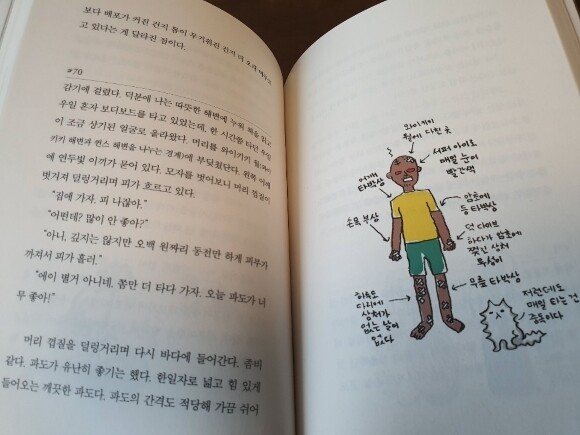 보다 배포가 커진 건지 뭘이 무거워진 건지 더
고 있다는 게 달라진 점이다.
#70
감기에 걸렸다. 덕분에 나는 따뜻한 해변에 누워 책을 읽고
우일 혼자 보디보드를 타고 있었는데, 한 시간쯤 타던 우일
이 조금 상기된 얼굴로 올라왔다. 머리를 와이키키 월(와이
키키 해변과 퀸스 해변을 나누는 경계)에 부딪쳤단다. 왼쪽 어깨
에 연두빛 이끼가 묻어 있다. 모자를 벗어보니 머리 껍질이
벗겨져 덜렁거리며 피가 흐르고 있다.
"집에 가자. 피 나잖아."
"어떤데? 많이 안 좋아?"
"아니, 깊지는 않지만 오백 원짜리 동전만 하게 피부가
까져서 피가 흘러."
"에이 별거 아니네. 좀만 더 타다 가자. 오늘 파도가 너
무 좋아!"
머리 껍질을 덜렁거리며 다시 바다에 들어간다. 좀비
같다. 파도가 유난히 좋기는 했다. 한일자로 넓고 힘 있게
들어오는 깨끗한 파도다. 파도의 간격도 적당해 가끔 쉬어
와이키키
월에 다친 곳
서퍼 아이로
매일 눈이
빨간색
어깨
타박상
암초에
등 타박상
손목 부상
덕 다이브
하다가 암초에
찢긴 상처
투성이
무릎 타박상
하루도
다리에
상처가
없는 날이
없다
저런데도
매일 타는 건
중독이다